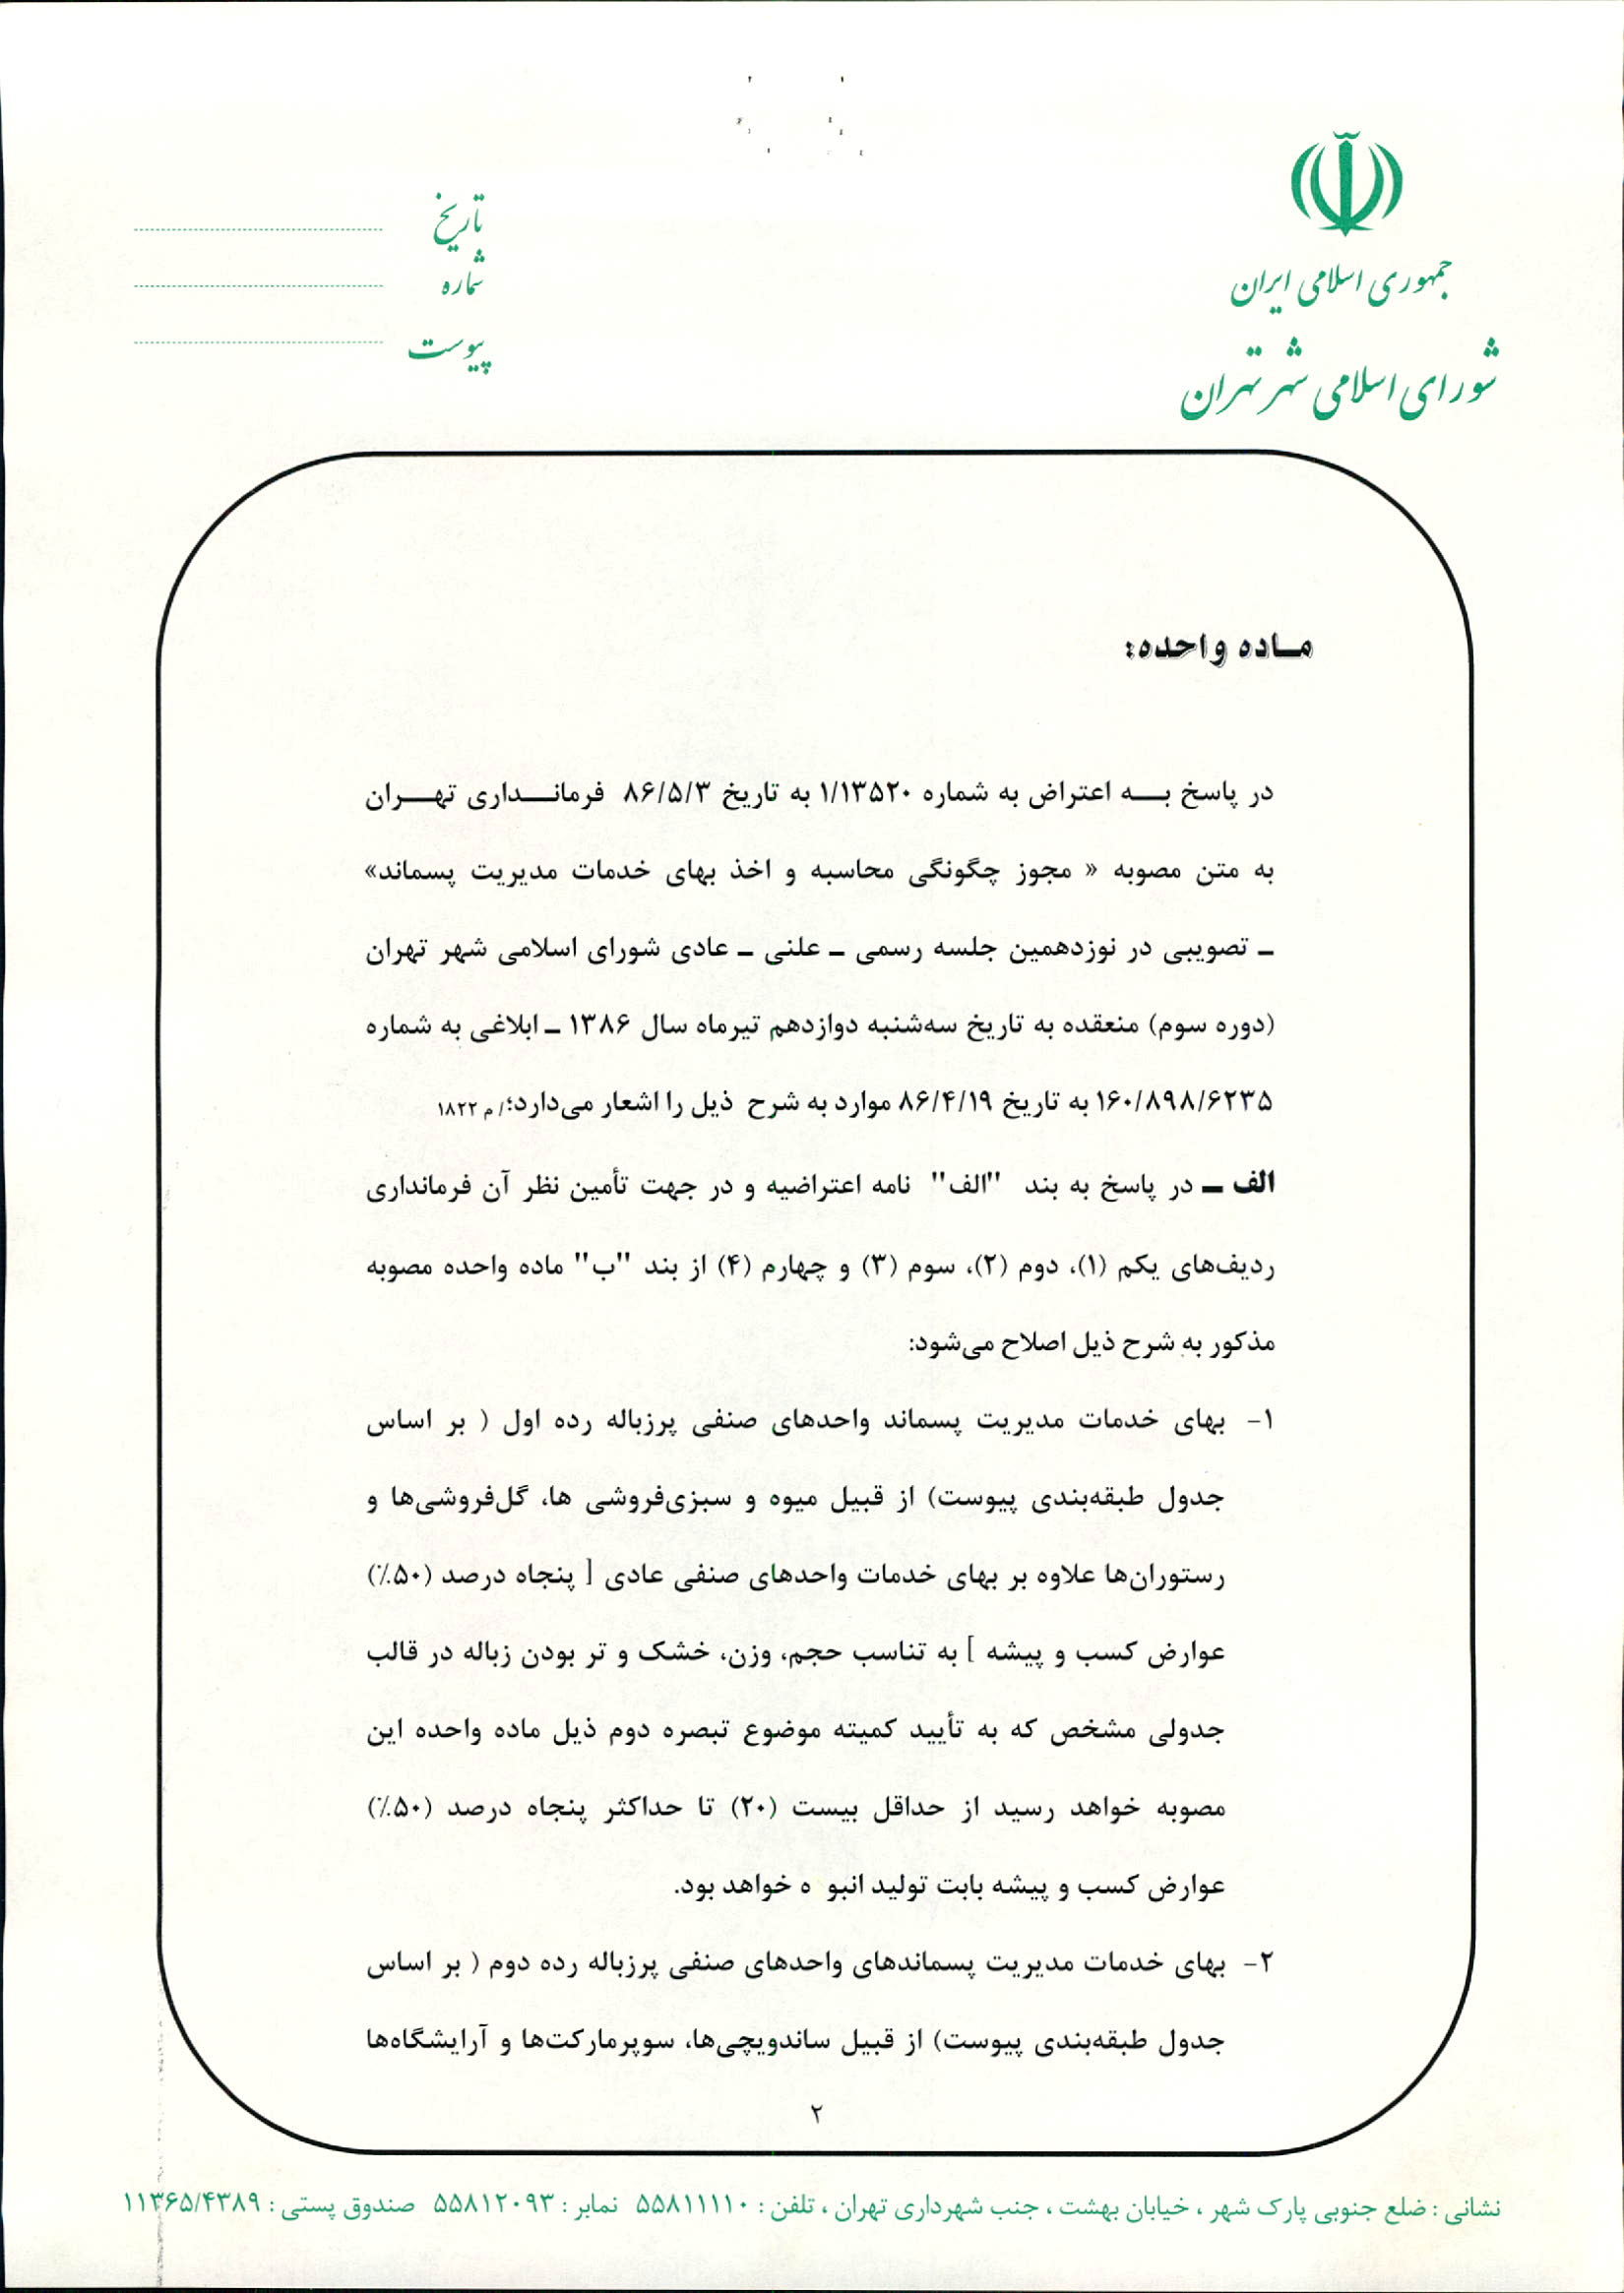 جمهوری اسلامی ایران
شورای اسلامی شهر تهران
تاریخ
شماره
پیوست
ماده واحده:
در پاسخ به اعتراض به شماره ۱/۱۳۵۲۰ به تاریخ ۸۶/۵/۳ فرمانداری تهران
به متن مصوبه « مجوز چگونگی محاسبه و اخذ بهای خدمات مدیریت پسماند»
ـ تصویبی در نوزدهمین جلسه رسمی ـ علنی ـ عادی شورای اسلامی شهر تهران
(دوره سوم) منعقده به تاریخ سه‌شنبه دوازدهم تیرماه سال ۱۳۸۶ ـ ابلاغی به شماره
۱۶۰/۸۹۸/۶۲۳۵ به تاریخ ۸۶/۴/۱۹ موارد به شرح ذیل را اشعار می‌دارد؛/ م ۱۸۲۲
الف ـ در پاسخ به بند "الف" نامه اعتراضیه و در جهت تأمین نظر آن فرمانداری
ردیف‌های یکم (۱)، دوم (۲)، سوم (۳) و چهارم (۴) از بند "ب" ماده واحده مصوبه
مذکور به شرح ذیل اصلاح می‌شود:
۱- بهای خدمات مدیریت پسماند واحدهای صنفی پرزباله رده اول ( بر اساس
جدول طبقه‌بندی پیوست) از قبیل میوه و سبزی‌فروشی ها، گل‌فروشی‌ها و
رستوران‌ها علاوه بر بهای خدمات واحدهای صنفی عادی [ پنجاه درصد (۵۰٪)
عوارض کسب و پیشه ] به تناسب حجم، وزن، خشک و تر بودن زباله در قالب
جدولی مشخص که به تأیید کمیته موضوع تبصره دوم ذیل ماده واحده این
مصوبه خواهد رسید از حداقل بیست (۲۰) تا حداکثر پنجاه درصد (۵۰٪)
عوارض کسب و پیشه بابت تولید انبو ه خواهد بود.
۲- بهای خدمات مدیریت پسماندهای واحدهای صنفی پرزباله رده دوم ( بر اساس
جدول طبقه‌بندی پیوست) از قبیل ساندویچی‌ها، سوپرمارکت‌ها و آرایشگاه‌ها
۲
نشانی : ضلع جنوبی پارک شهر ، خیابان بهشت ، جنب شهرداری تهران ، تلفن : ۵۵۸۱۱۱۱۰ نمابر : ۵۵۸۱۲۰۹۳ صندوق پستی : ۱۱۳۶۵/۴۳۸۹